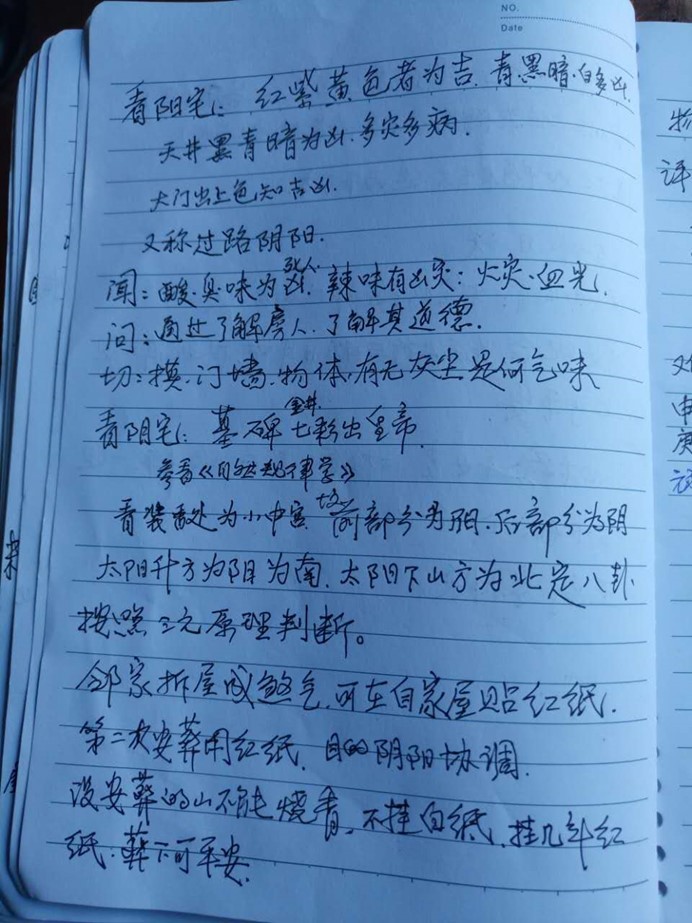 NO.
Date
看阳宅: 红紫黄色者为吉. 青黑暗白多凶.
天井黑青暗为凶. 多灾多病.
大门出上色知吉凶.
又称过路阴阳.
闻: 酸臭味为凶. 辣味有凶灾: 火灾. 血光.
问: 通过了解房人. 了解其道德.
切: 摸. 门墙. 物体, 有无灰尘是何气味
金井.
看阴宅: 墓碑七彩出皇帝.
参看《自然规律学》
看装香处为小中宫 前部分为阳. 后部分为阴
太阳升方为阳为南. 太阳下山方为北定八卦
按照三元原理判断。
邻家拆屋成煞气. 可在自家屋贴红纸.
第二次安葬用红纸. 目的阴阳协调.
没安葬的山不能烧香. 不挂白纸. 挂几斗红
纸. 葬下可平安.
物
评
又
申
庚